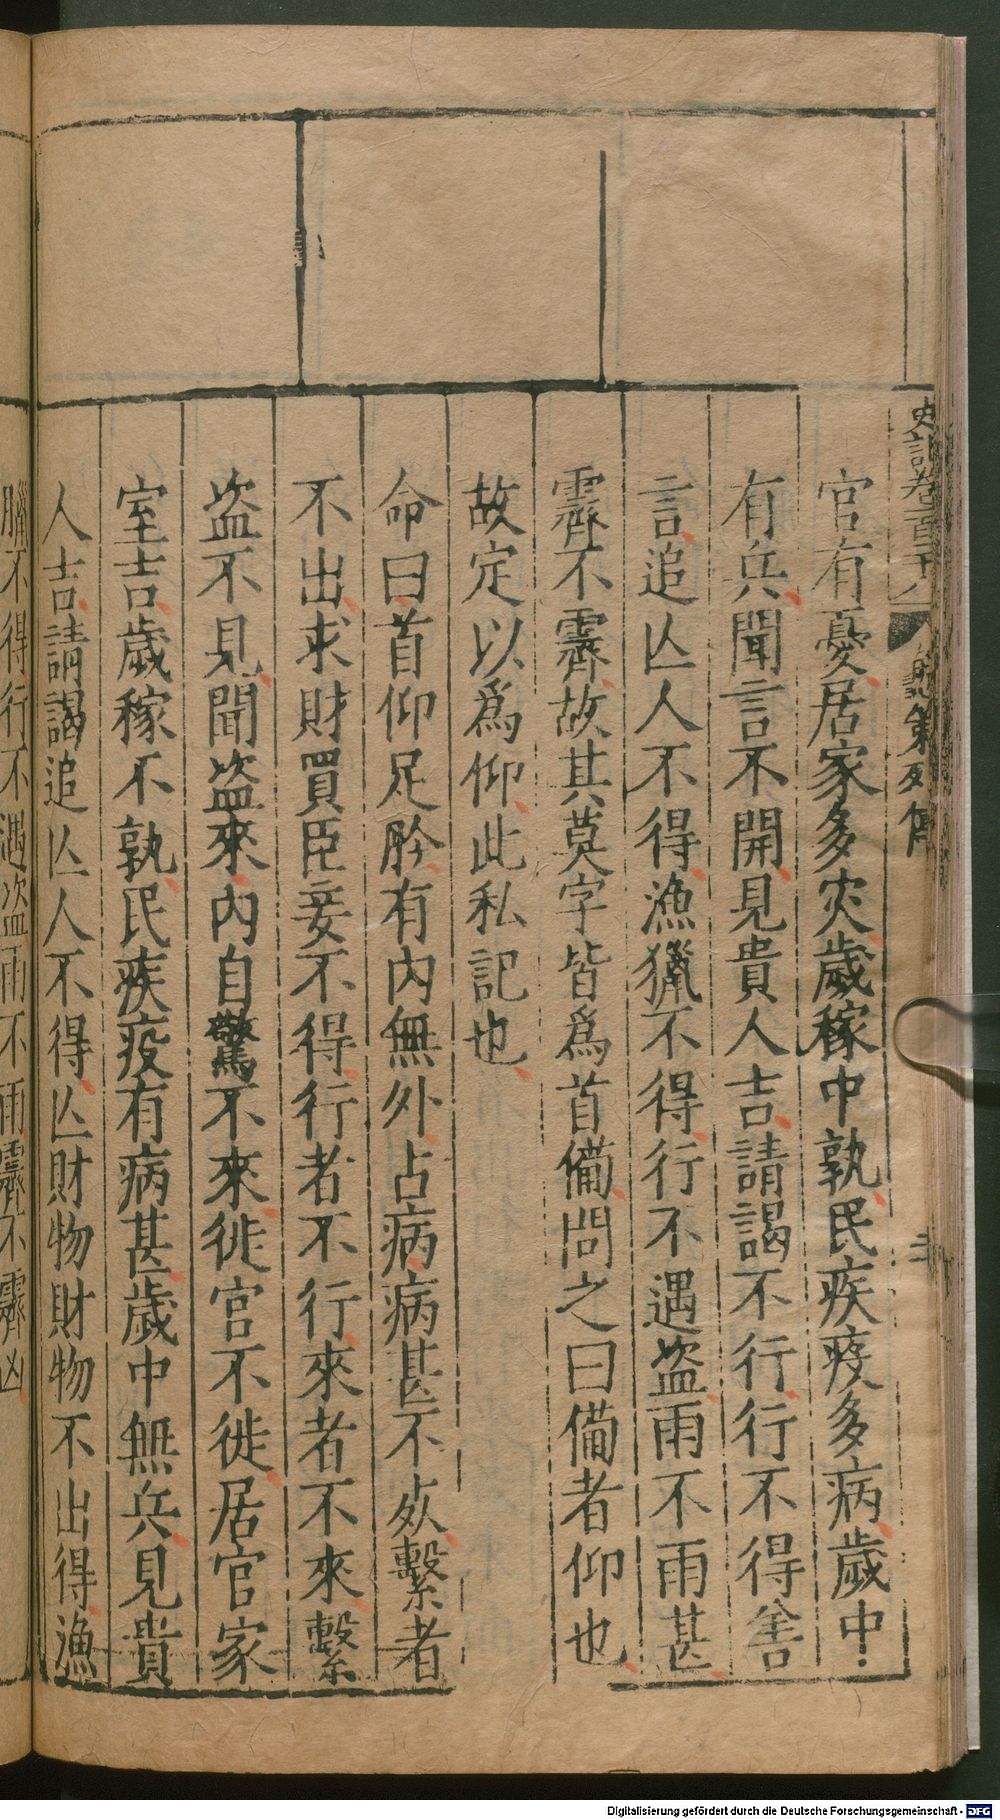 史記卷一百二十八 龜策列傳
官有憂居家多災歲稼中孰民疾疫多病歲中
有兵聞言不開見貴人吉請謁不行行不得善
言追亾人不得漁獵不得行不遇盜雨不雨甚
霽不霽故其莫字皆爲首備問之曰備者仰也
故定以爲仰此私記也
命曰首仰足肣有內無外占病病甚不死繫者
不出求財買臣妾不得行者不行來者不來擊
盜不見聞盜來內自驚不來徙官不徙居官家
室吉歲稼不孰民疾疫有病甚歲中無兵見貴
人吉請謁追亾人不得亾財物財物不出得漁
獵不得行不遇盜雨不雨霽不霽凶
Digitalisierung gefördert durch die Deutsche Forschungsgemeinschaft - DFG